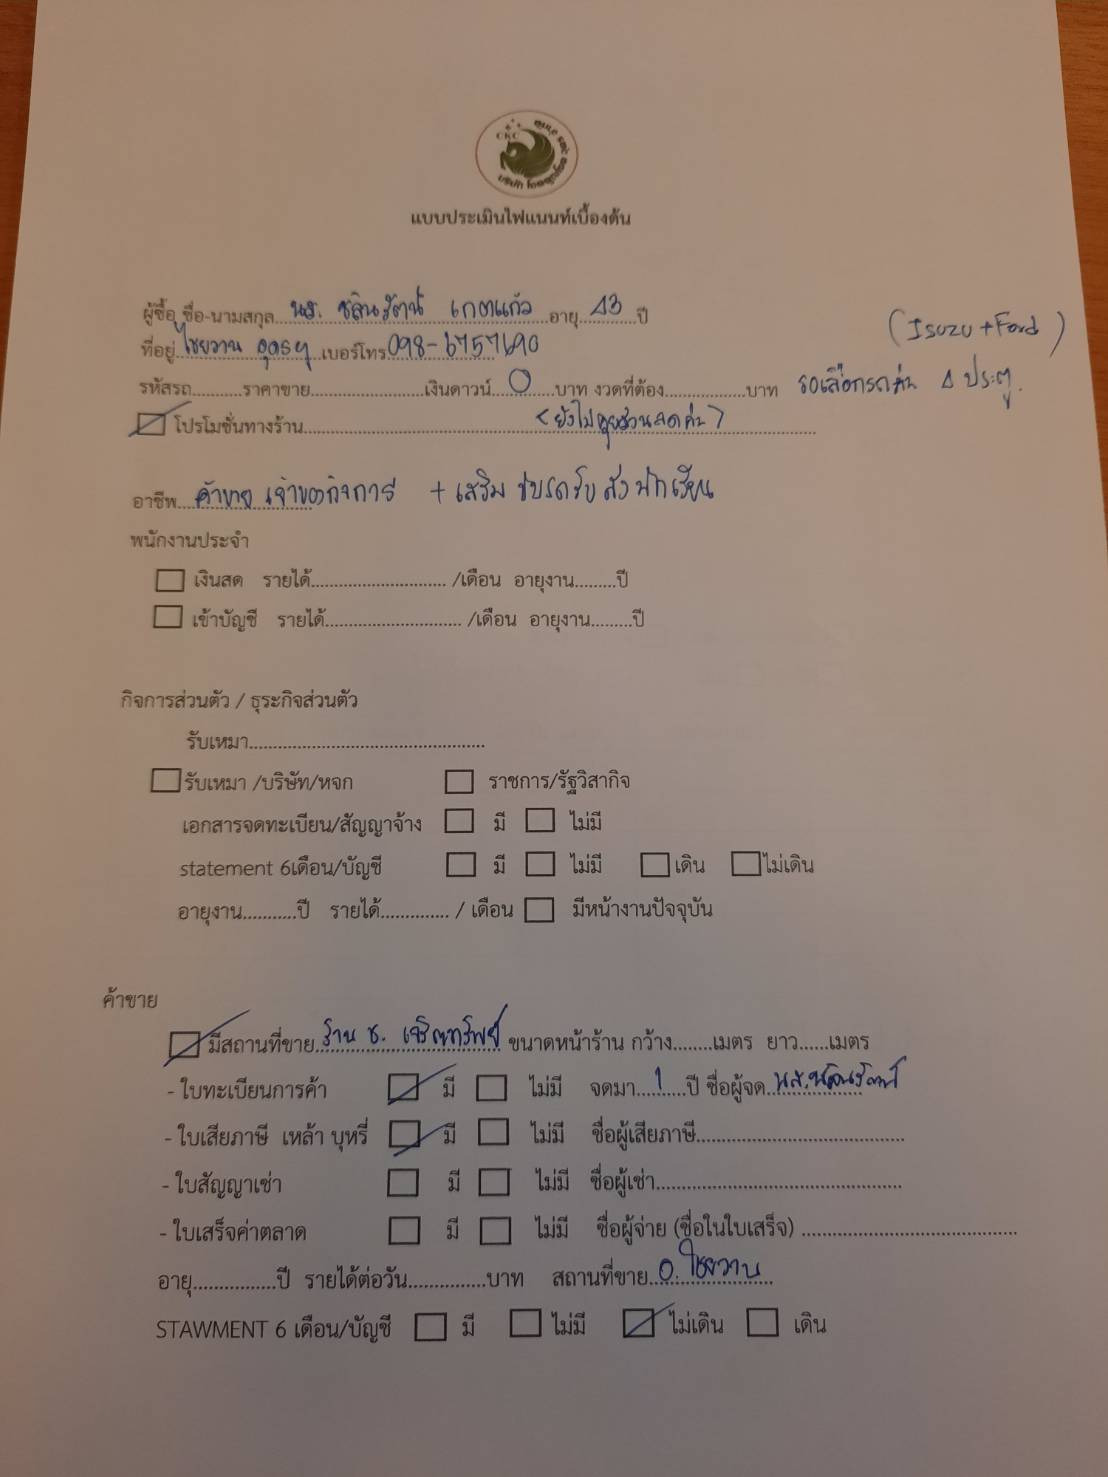 CKC
แบบประเมินไฟแนนท์เบื้องต้น
ผู้ซื้อ ชื่อ-นามสกุล....นส. ชลินรัตน์ เกตแก้ว....อายุ..43..ปี
(Isuzu + Ford)
ที่อยู่..ไชยวาน อุดรฯ..เบอร์โทร 098-6757690
รหัสรถ...........ราคาขาย.........................เงินดาวน์...0...บาท งวดที่ต้อง..................บาท รอเลือกรถค่ะ 4 ประตู
โปรโมชั่นทางร้าน.......... <ยังไม่คุยส่วนลดค่ะ>
อาชีพ....ค้าขาย เจ้าของกิจการ + เสริม ขับรถรับ ส่ง นักเรียน
พนักงานประจำ
เงินสด รายได้.............................. /เดือน อายุงาน.........ปี
เข้าบัญชี รายได้.............................. /เดือน อายุงาน.........ปี
กิจการส่วนตัว / ธุระกิจส่วนตัว
รับเหมา..................................................
รับเหมา /บริษัท/หจก ราชการ/รัฐวิสากิจ
เอกสารจดทะเบียน/สัญญาจ้าง มี ไม่มี
statement 6เดือน/บัญชี มี ไม่มี เดิน ไม่เดิน
อายุงาน...........ปี รายได้.............. / เดือน มีหน้างานปัจจุบัน
ค้าขาย
มีสถานที่ขาย..ร้าน ช. เจริญทรัพย์ ขนาดหน้าร้าน กว้าง........เมตร ยาว......เมตร
- ใบทะเบียนการค้า มี ไม่มี จดมา...1...ปี ชื่อผู้จด..นส.ชลินรัตน์
- ใบเสียภาษี เหล้า บุหรี่ มี ไม่มี ชื่อผู้เสียภาษี..........................................
- ใบสัญญาเช่า มี ไม่มี ชื่อผู้เช่า..................................................
- ใบเสร็จค่าตลาด มี ไม่มี ชื่อผู้จ่าย (ชื่อในใบเสร็จ) ...........................................
อายุ.................ปี รายได้ต่อวัน...............บาท สถานที่ขาย..อ.ไชยวาน
STAWMENT 6 เดือน/บัญชี มี ไม่มี ไม่เดิน เดิน